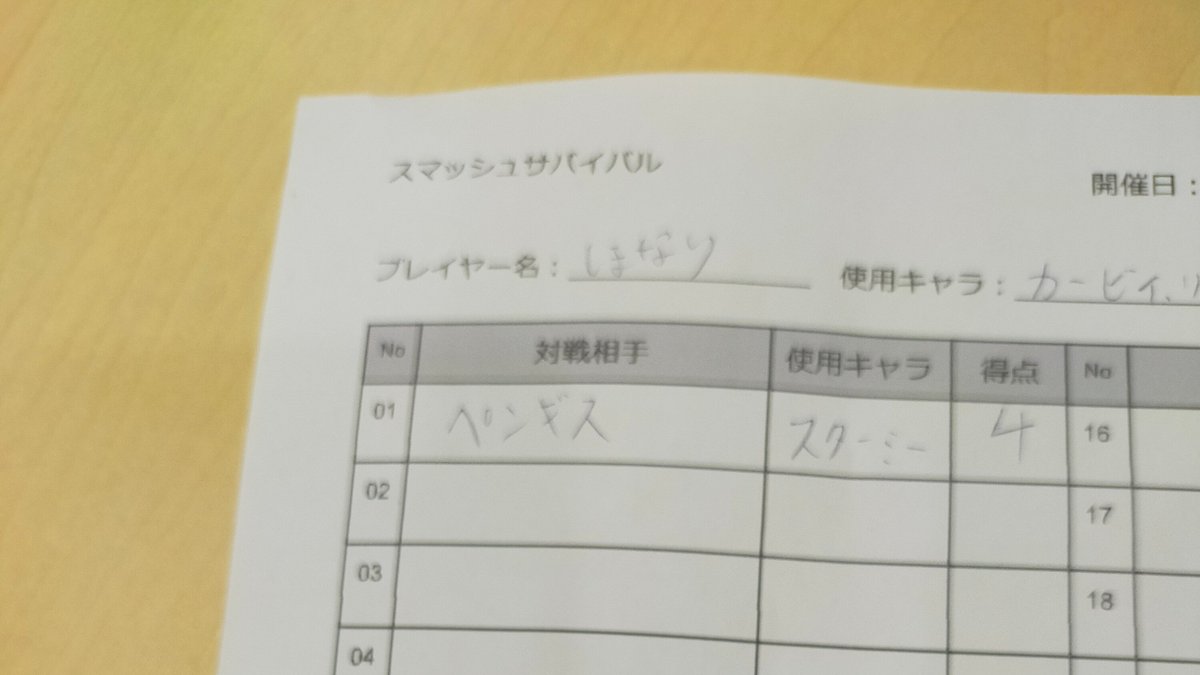 スマッシュサバイバル
開催日：
プレイヤー名：しまなり 使用キャラ：カービィ、リ
No 対戦相手 使用キャラ 得点 No
01 ペンギス スクーミー 4 16
02 17
03 18
04